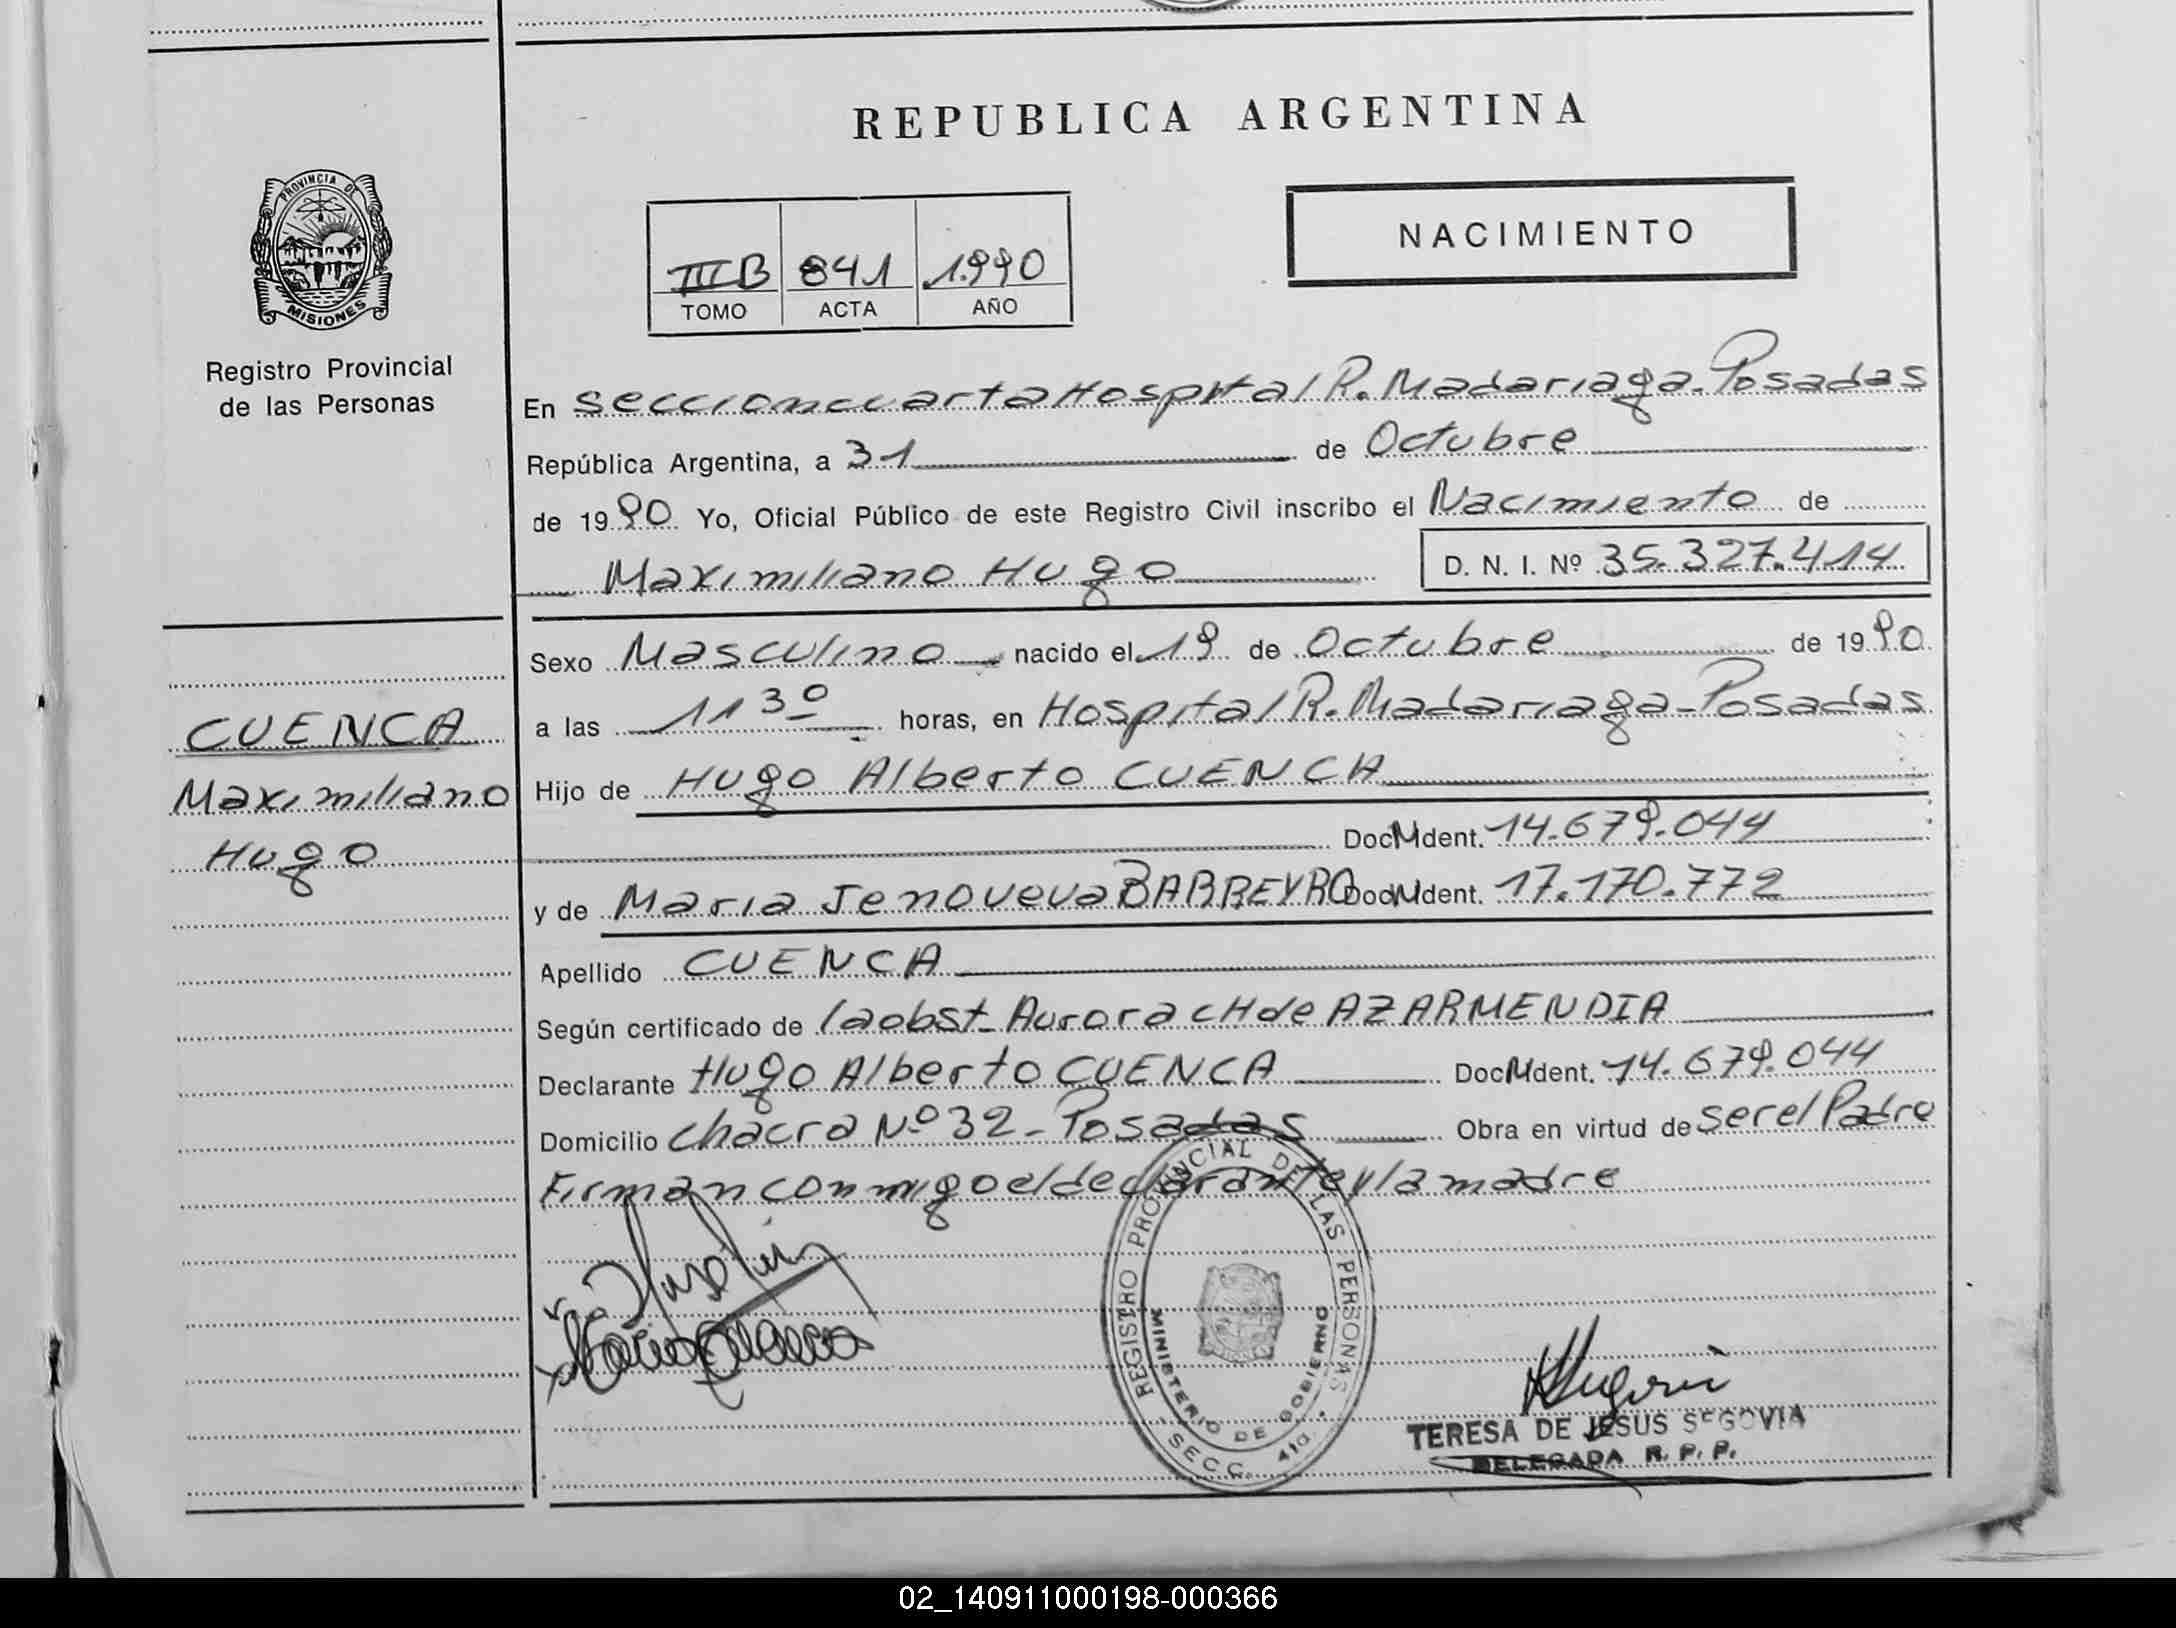 REPUBLICA ARGENTINA
PROVINCIA DE
MISIONES
Registro Provincial
de las Personas
NACIMIENTO
III B 841 1.990
TOMO ACTA AÑO
En Seccion cuarta Hospital R. Madariaga - Posadas
República Argentina, a 31 de Octubre
de 1990 Yo, Oficial Público de este Registro Civil inscribo el Nacimiento de
Maximiliano Hugo D. N. I. Nº 35.327.414
Sexo Masculino nacido el 19 de Octubre de 1990
a las 11 30 horas, en Hospital R. Madariaga - Posadas
CUENCA
Maximiliano
Hugo
Hijo de Hugo Alberto CUENCA
Doc M Ident. 14.679.044
y de Maria Jenoveva BARREYRO Doc M Ident. 17.170.772
Apellido CUENCA
Según certificado de la obst. Aurora CH de AZARMENDIA
Declarante Hugo Alberto CUENCA Doc M Ident. 14.679.044
Domicilio chacra Nº 32 - Posadas Obra en virtud de ser el Padre
Firman conmigo el declarante y la madre
REGISTRO PROVINCIAL DE LAS PERSONAS
MINISTERIO DE GOBIERNO
SECC. 4ta.
TERESA DE JESUS SEGOVIA
DELEGADA R. P. P.
02_140911000198-000366